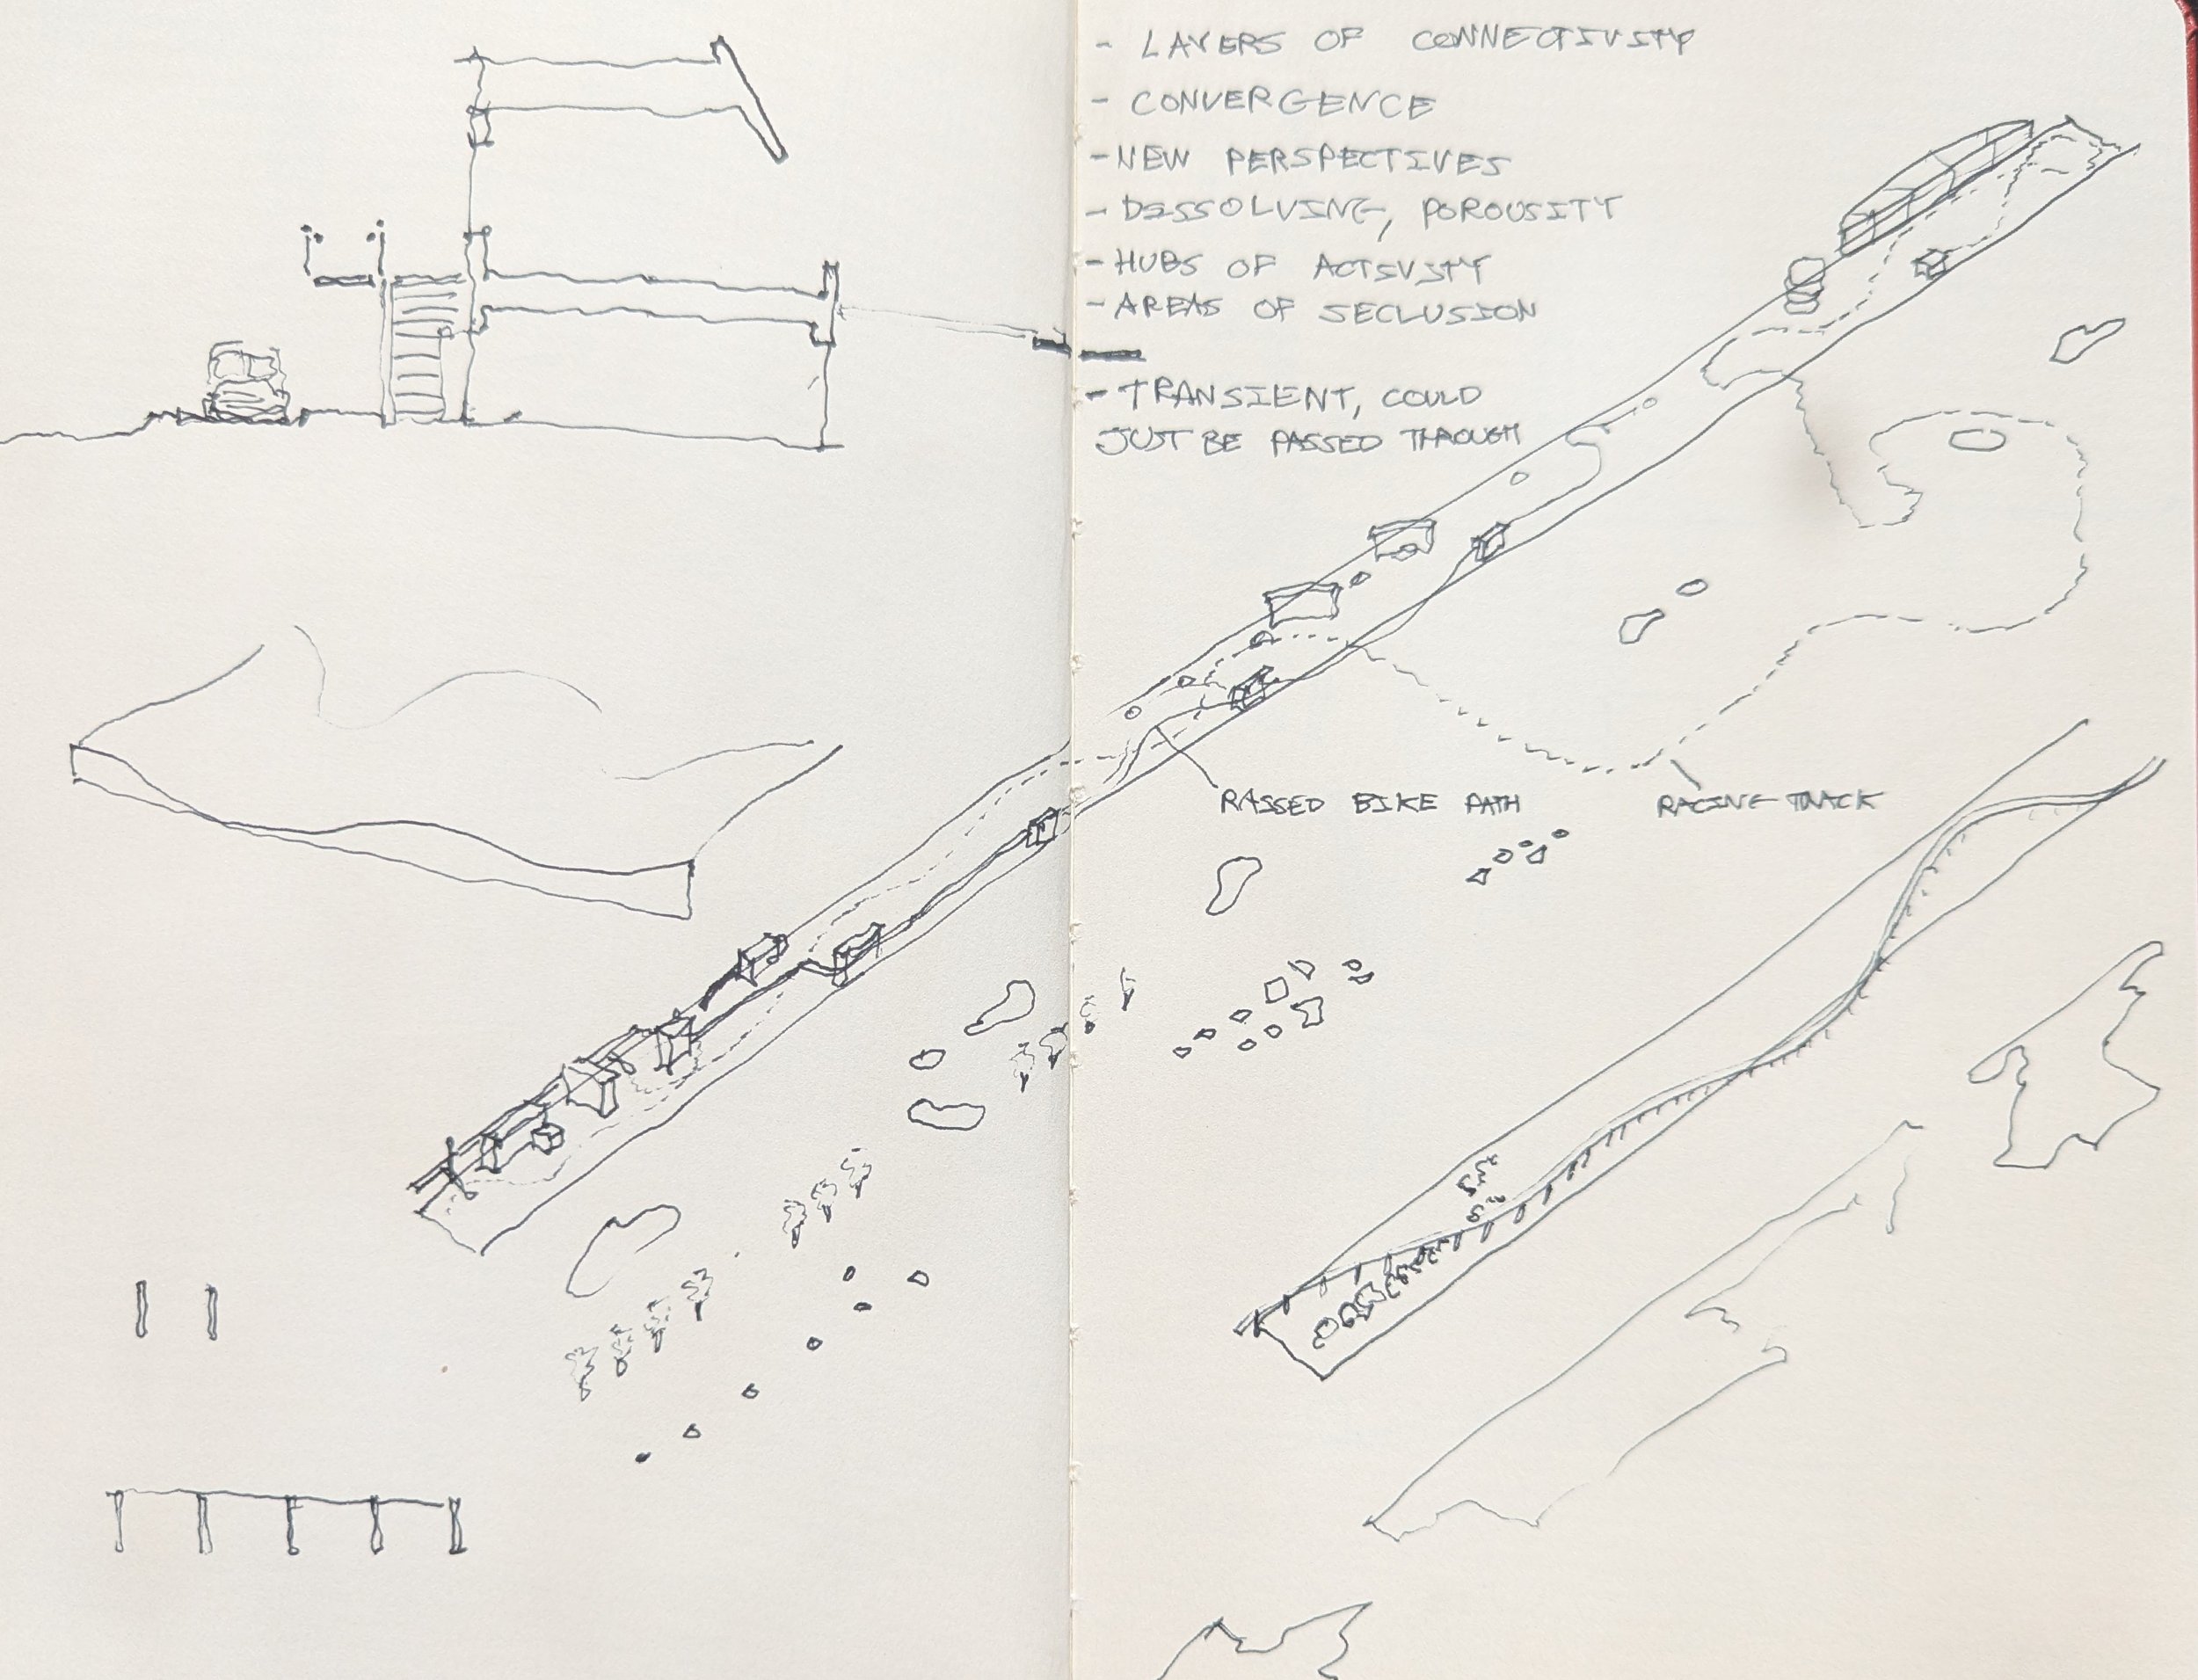 - LAYERS OF CONNECTIVITY
- CONVERGENCE
- NEW PERSPECTIVES
- DISSOLVING, POROUSITY
- HUBS OF ACTIVITY
- AREAS OF SECLUSION
- TRANSIENT, COULD
JUST BE PASSED THROUGH
RAISED BIKE PATH
RACING TRACK